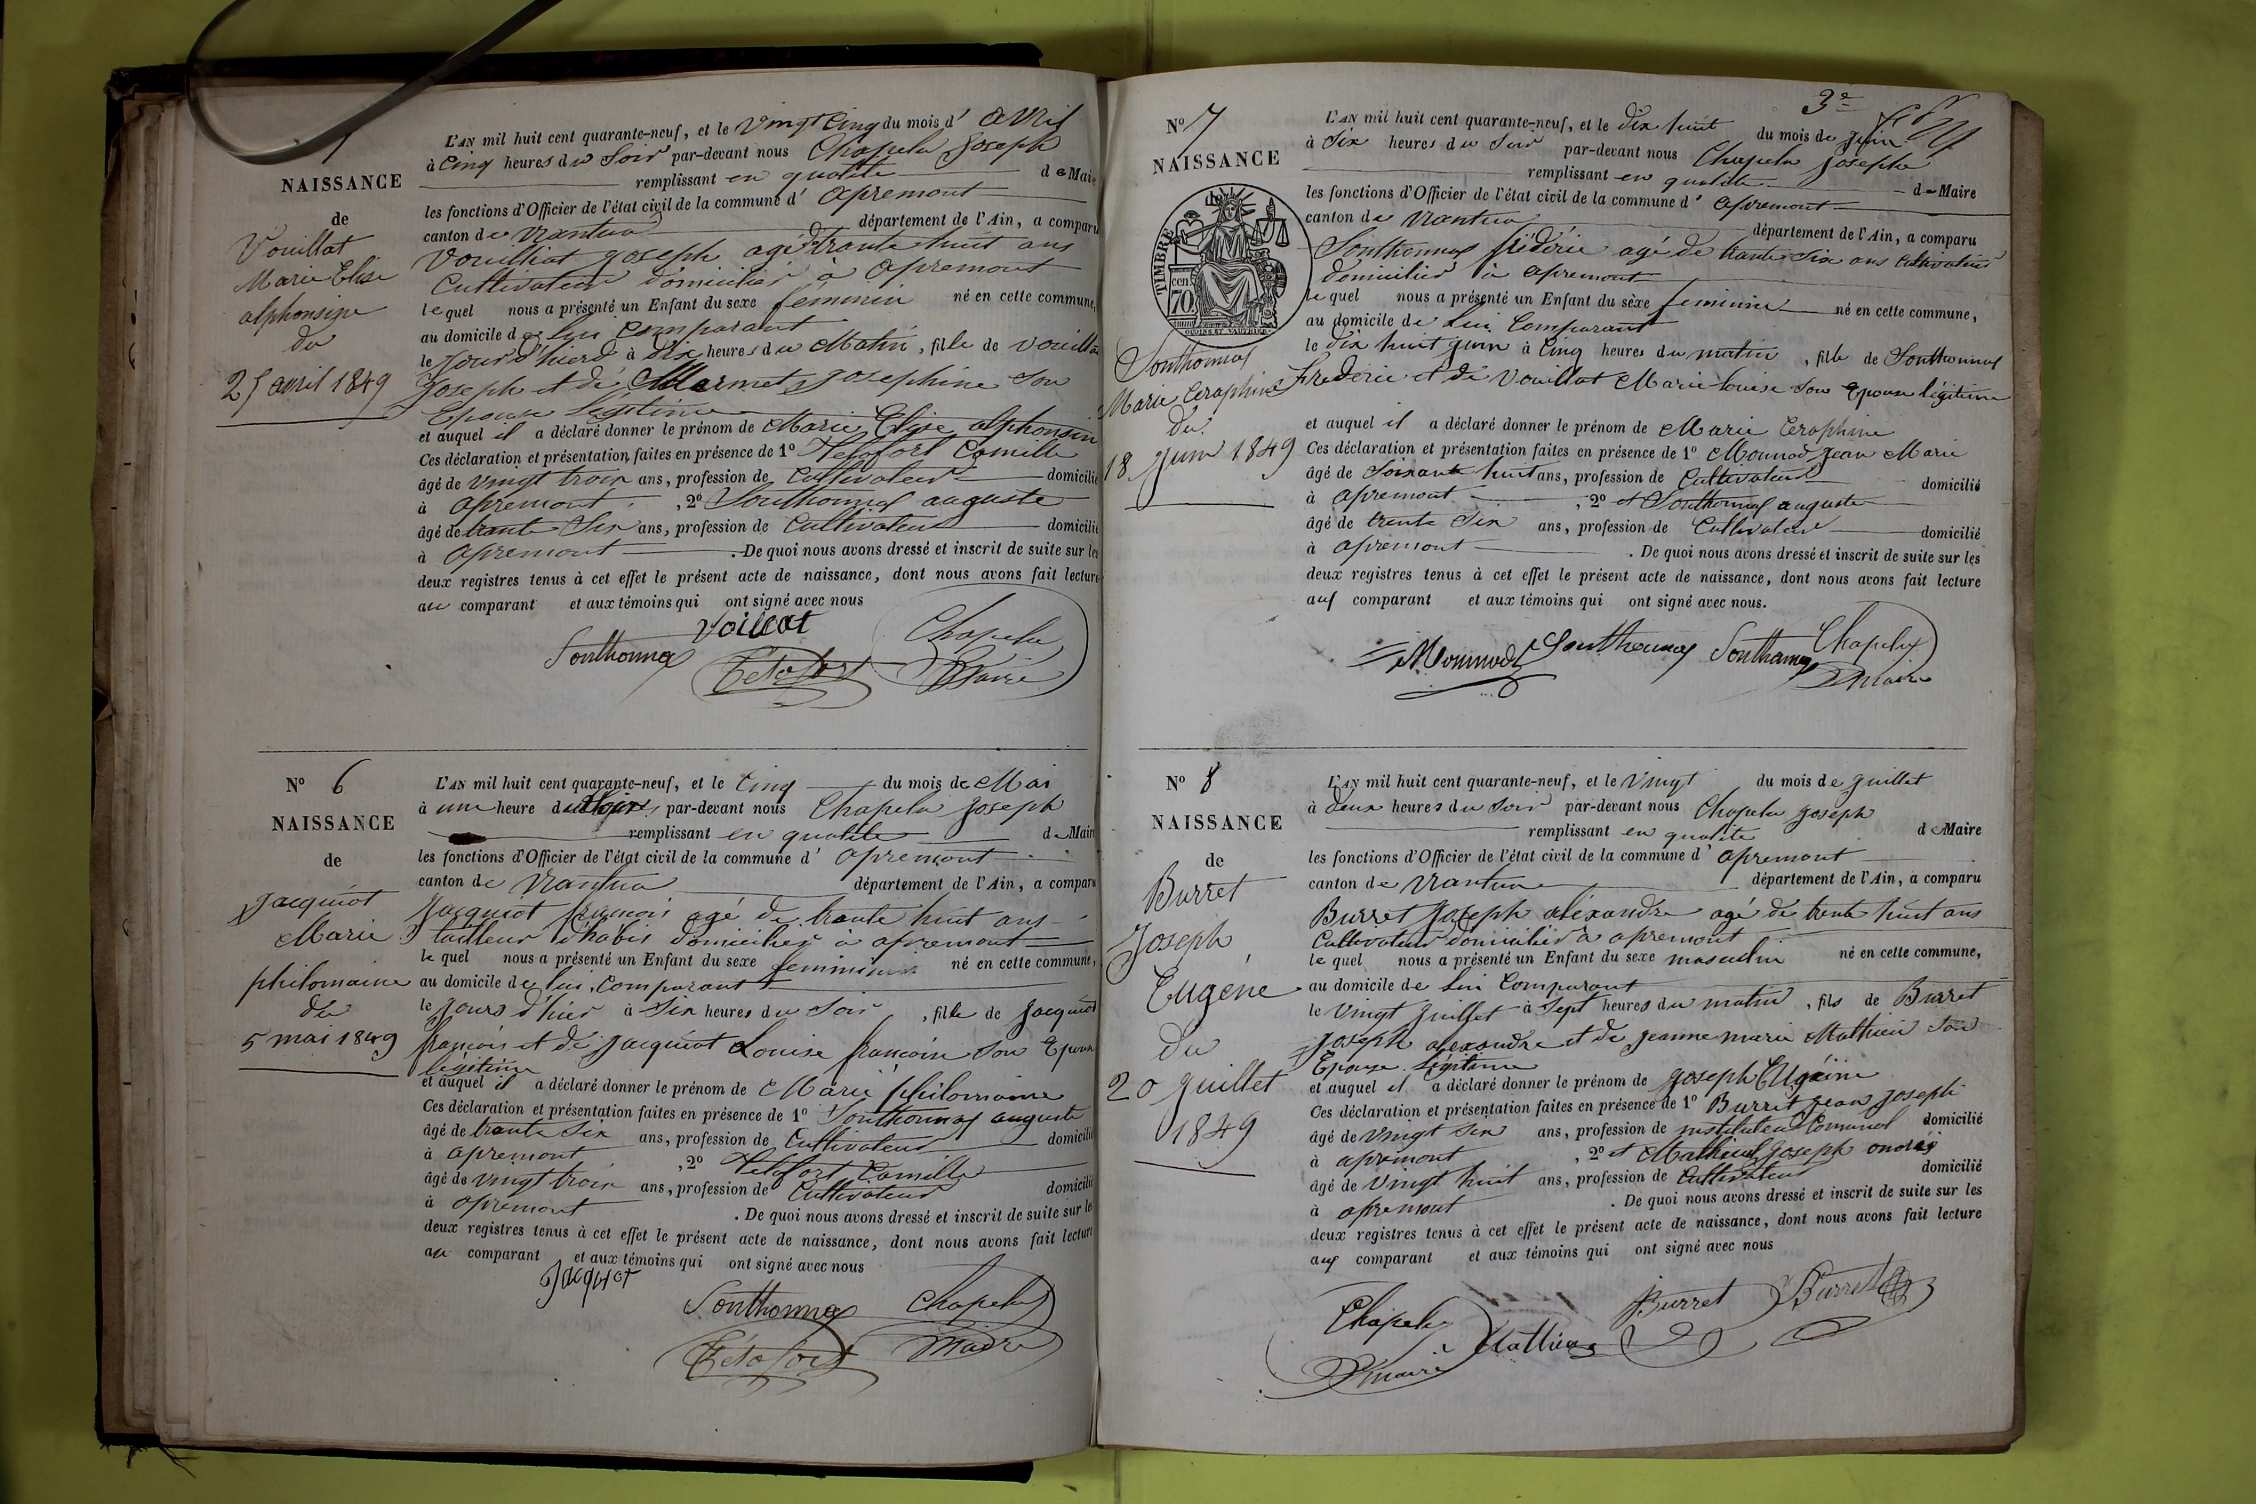 NAISSANCE
de
Vouillat
Marie Elise
alphonsine
du
25 avril 1849
L'AN mil huit cent quarante-neuf, et le vingt cinq du mois d' avril
à cinq heures du Soir par-devant nous Chapelu Joseph
remplissant en qualité de Maire
les fonctions d'Officier de l'état civil de la commune d' apremont
canton de Nantua département de l'Ain, a comparu
Vouilliat joseph agé de trante huit ans
Cultivateur domicilié à apremont
lequel nous a présenté un Enfant du sexe féminin né en cette commune,
au domicile de lui comparant
le jour d'hier à dix heures du Matin, fille de Vouillat
Joseph et de Marmet josephine son
Epouse légitime
et auquel il a déclaré donner le prénom de Marie Elise alphonsin
Ces déclaration et présentation faites en présence de 1º Telofort Camille
âgé de vingt trois ans, profession de Cultivateur domicilié
à apremont, 2º Southonnax auguste
âgé de trante Six ans, profession de Cultivateur domicilié
à apremont. De quoi nous avons dressé et inscrit de suite sur les
deux registres tenus à cet effet le présent acte de naissance, dont nous avons fait lecture
au comparant et aux témoins qui ont signé avec nous
Voillat
Southonnax Telofort Chapelu
Maire
Nº 6
NAISSANCE
de
Jacquiot
Marie
philomaine
du
5 mai 1849
L'AN mil huit cent quarante-neuf, et le Cinq du mois de Mai
à une heure du Soir par-devant nous Chapelu Joseph
remplissant en qualité de Maire
les fonctions d'Officier de l'état civil de la commune d' apremont
canton de Nantua département de l'Ain, a comparu
Jacquiot françois agé de trante huit ans
tailleur d'habis domicilier à apremont
lequel nous a présenté un Enfant du sexe feminin né en cette commune,
au domicile de lui comparant
le jours d'hier à Six heures du Soir, fille de Jacquiot
françois et de Jacquiot Louise françoise son Epouse
légitime
et auquel il a déclaré donner le prénom de Marie philomaine
Ces déclaration et présentation faites en présence de 1º Southonnax auguste
âgé de trante Six ans, profession de Cultivateur domicilié
à apremont, 2º Telofort Camille
âgé de vingt trois ans, profession de Cultivateur domicilié
à apremont. De quoi nous avons dressé et inscrit de suite sur les
deux registres tenus à cet effet le présent acte de naissance, dont nous avons fait lecture
au comparant et aux témoins qui ont signé avec nous
Jacquiot
Southonnax Chapelu
Telofort Maire
3e
Nº 7
NAISSANCE
de
TIMBRE
cen. 70
Southonnax
Marie Ceraphine
du
18 juin 1849
L'AN mil huit cent quarante-neuf, et le dix huit du mois de juin
à Six heures du Soir par-devant nous Chapelu Joseph
remplissant en qualité de Maire
les fonctions d'Officier de l'état civil de la commune d' apremont
canton de Nantua département de l'Ain, a comparu
Southonnax frédéric agé de trante Six ans cultivateur
domicilier à apremont
lequel nous a présenté un Enfant du sèxe feminin né en cette commune,
au domicile de Lui Comparant
le dix huit juin à Cinq heures du matin, fille de Southonnax
Frederic et de Vouillat Marie louise son Epouse légitime
et auquel il a déclaré donner le prénom de Marie Ceraphine
Ces déclaration et présentation faites en présence de 1º Mounod jean Marie
âgé de Soixante huit ans, profession de Cultivateur domicilié
à apremont, 2º et Southonnax auguste
âgé de trente Six ans, profession de Cultivateur domicilié
à apremont. De quoi nous avons dressé et inscrit de suite sur les
deux registres tenus à cet effet le présent acte de naissance, dont nous avons fait lecture
aux comparant et aux témoins qui ont signé avec nous.
Mounod Southonnax Southonnax Chapelu
Maire
Nº 8
NAISSANCE
de
Burret
Joseph
Eugène
du
20 juillet
1849
L'AN mil huit cent quarante-neuf, et le vingt du mois de juillet
à deux heures du Soir par-devant nous Chapelu Joseph
remplissant en qualité de Maire
les fonctions d'Officier de l'état civil de la commune d' apremont
canton de Nantua département de l'Ain, a comparu
Burret Joseph aléxandre agé de trente huit ans
Cultivateur domicilier à apremont
lequel nous a présenté un Enfant du sexe masculin né en cette commune,
au domicile de Lui Comparant
le vingt juillet à Sept heures du matin, fils de Burret
Joseph alexandre et de jeanne marie Mathieu son
Epouse légitime
et auquel il a déclaré donner le prénom de joseph Eugéine
Ces déclaration et présentation faites en présence de 1º Burret jean joseph
âgé de vingt six ans, profession de instituteur Comunal domicilié
à apremont, 2º et Mathieu joseph
âgé de vingt huit ans, profession de Cultivateur domicilié
à apremont. De quoi nous avons dressé et inscrit de suite sur les
deux registres tenus à cet effet le présent acte de naissance, dont nous avons fait lecture
aux comparant et aux témoins qui ont signé avec nous
Chapelu Mathieu Burret Burret
Maire